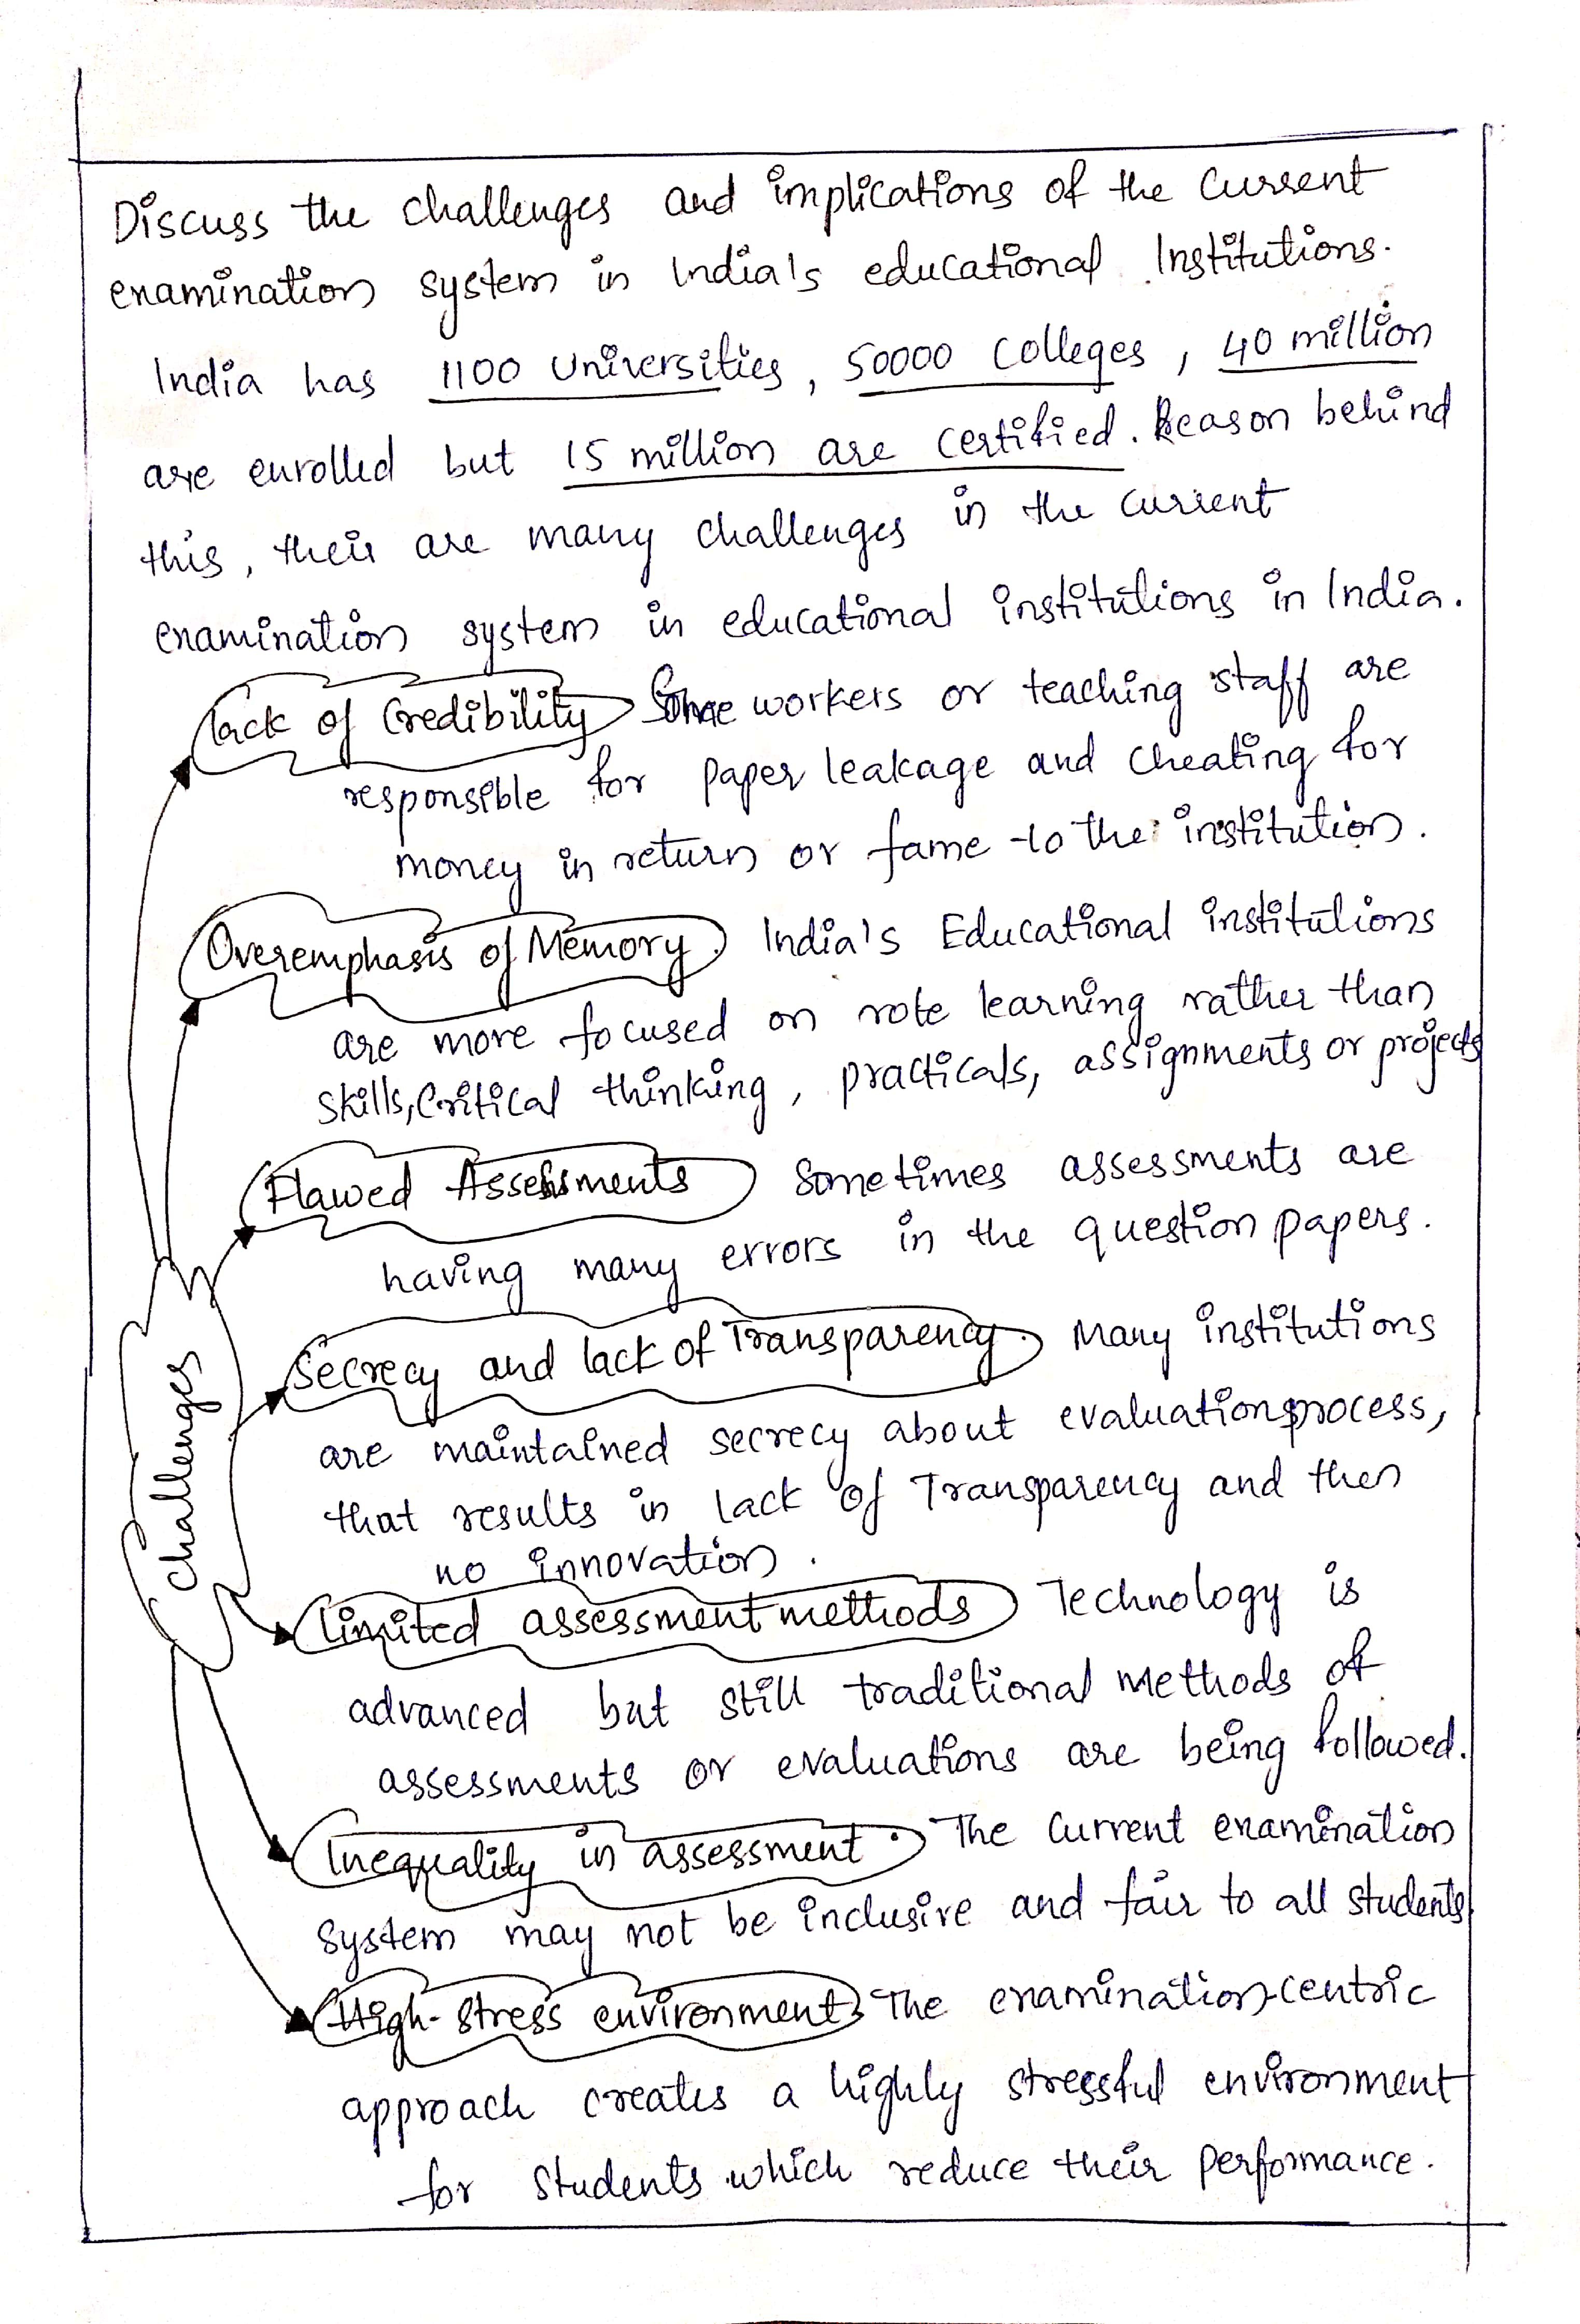 Discuss the challenges and implications of the current
examination system in India's educational Institutions.
India has 1100 Universities, 50000 Colleges, 40 million
are enrolled but 15 million are certified. Reason behind
this, their are many challenges in the current
examination system in educational institutions in India.
lack of Credibility Some workers or teaching staff are
responsible for paper leakage and cheating for
money in return or fame to the institution.
Overemphasis of Memory. India's Educational institutions
are more focused on rote learning rather than
skills, Critical thinking, practicals, assignments or projects
Flawed Assessments Sometimes assessments are
having many errors in the question papers.
Secrecy and lack of Transparency. Many institutions
are maintained secrecy about evaluation process,
that results in lack of Transparency and then
no innovation.
Challenges
limited assessment methods Technology is
advanced but still traditional methods of
assessments or evaluations are being followed.
Inequality in assessment. The current examination
system may not be inclusive and fair to all students
High-stress environment The examination-centric
approach creates a highly stressful environment
for students which reduce their performance.